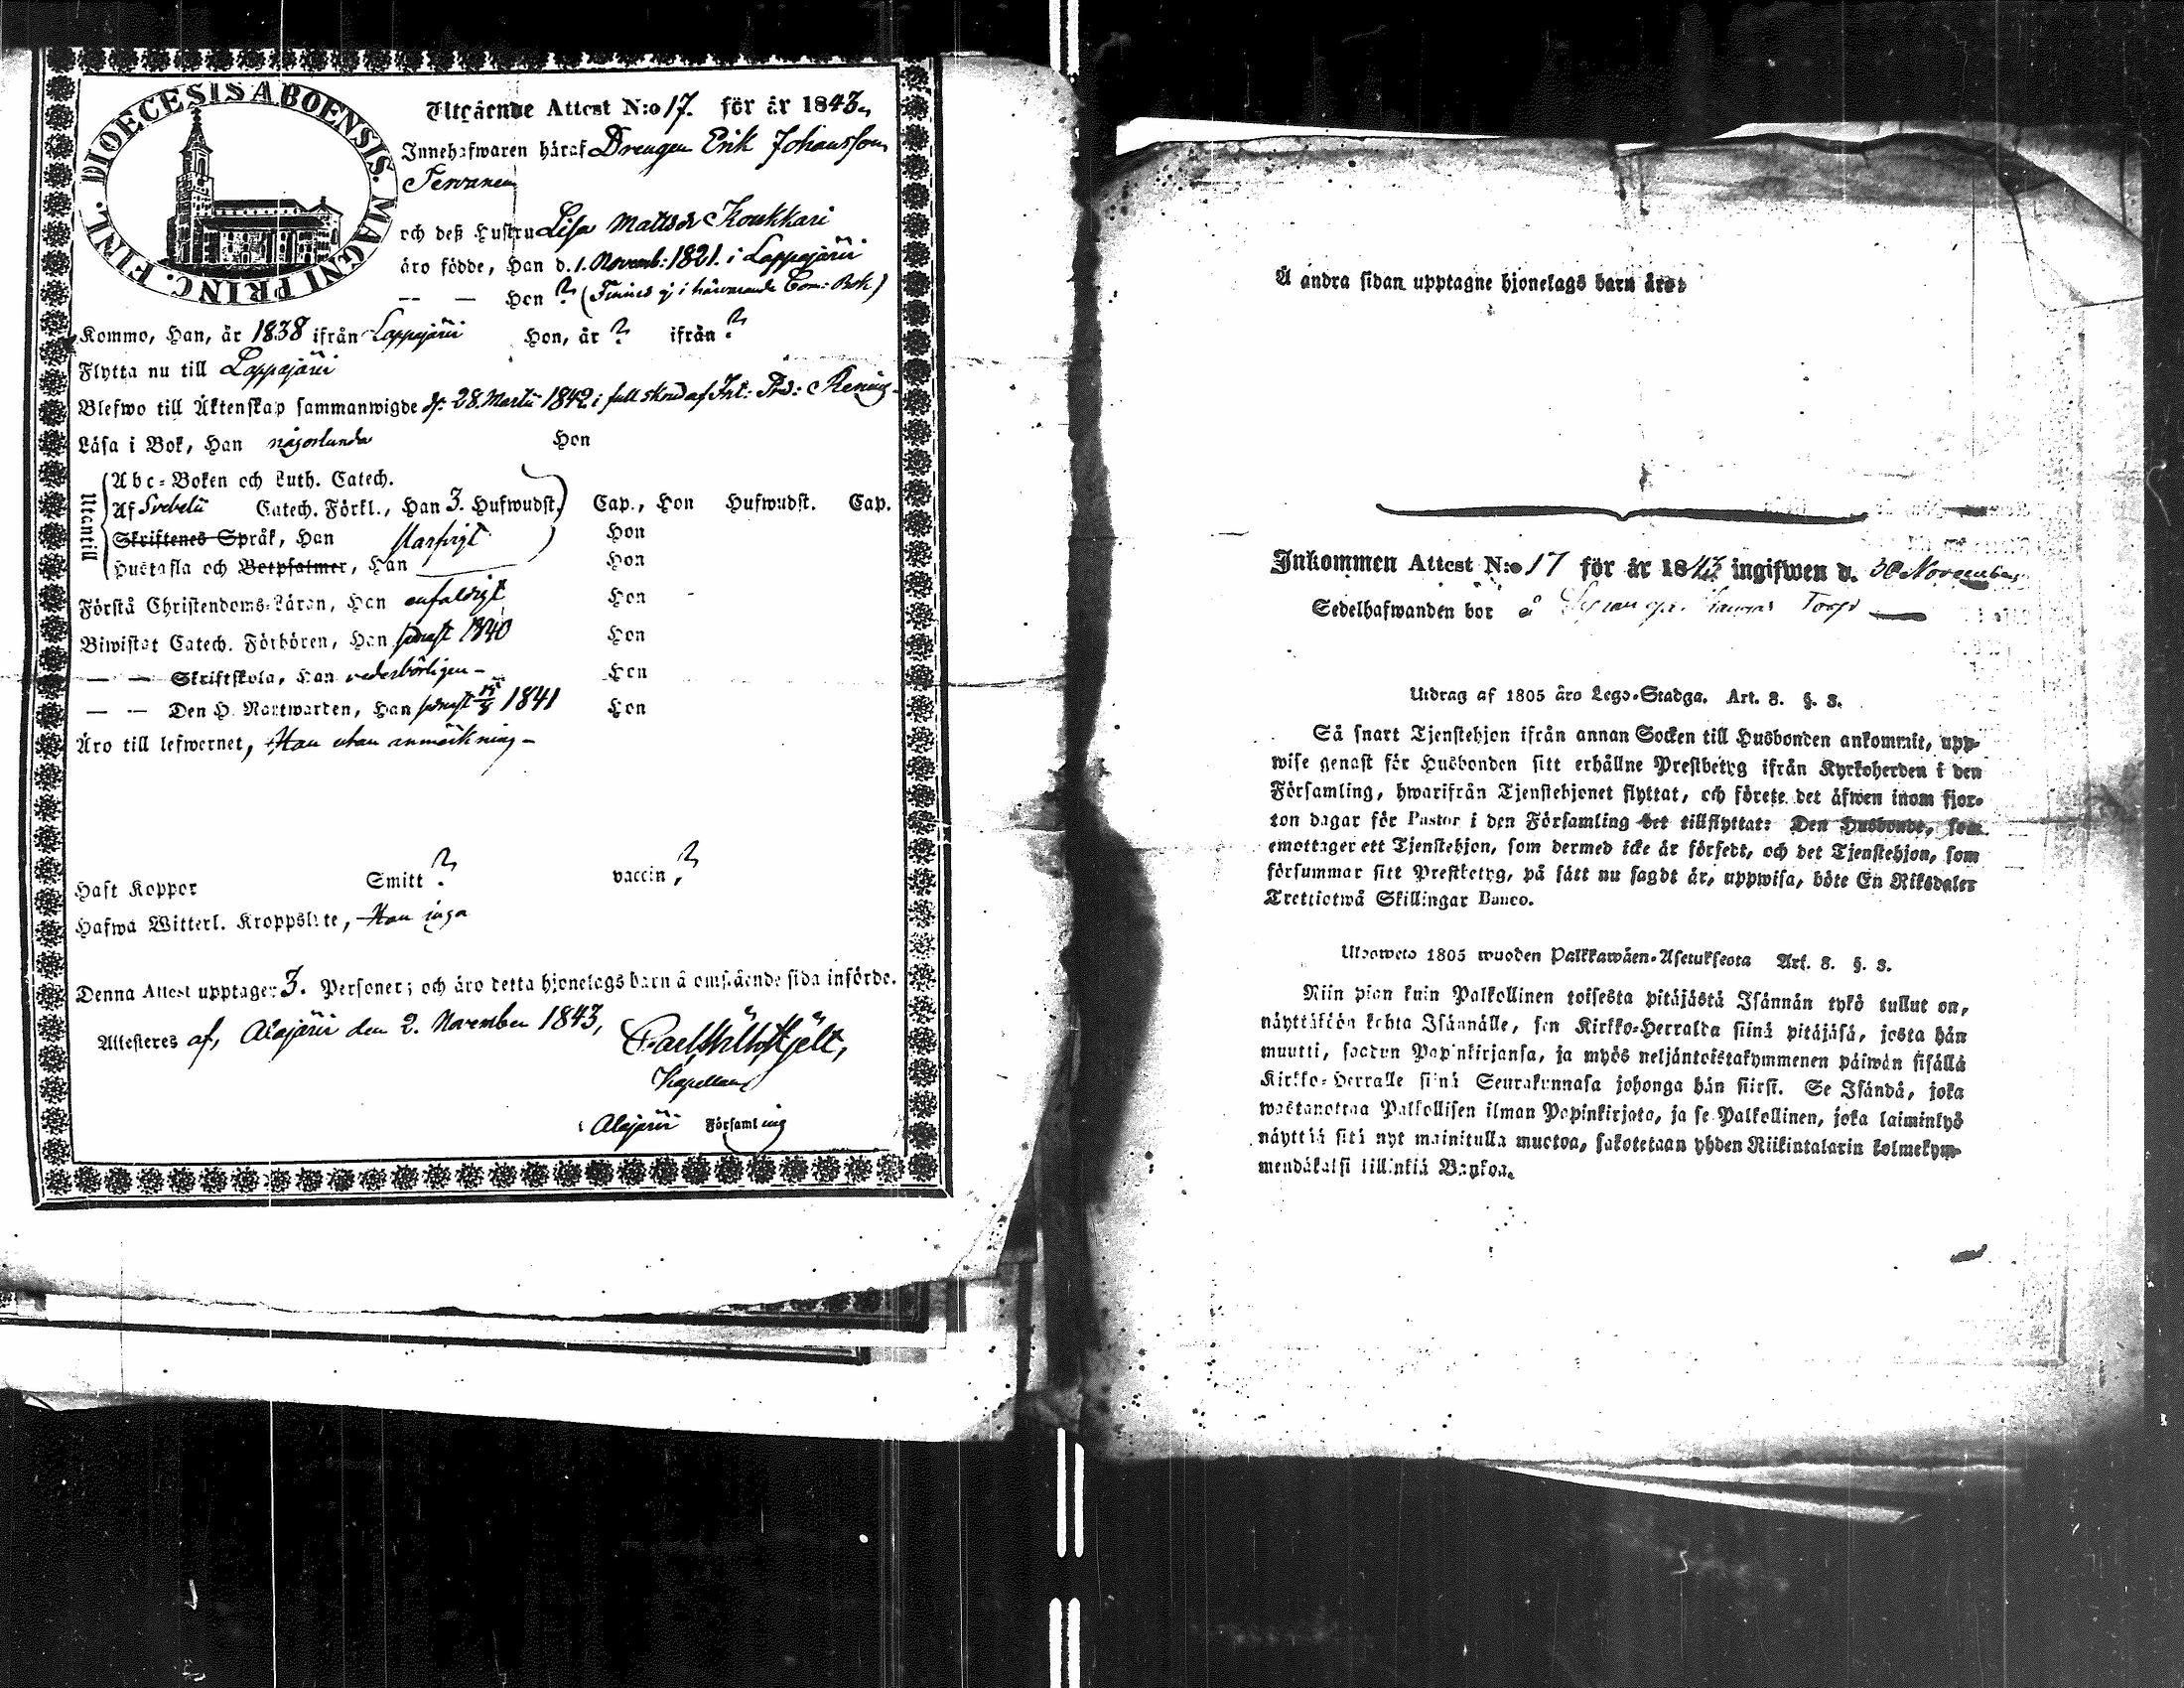 DIOECESIS ABOENSIS. MAGNI PRINC. FINL.
Utgående Attest N:o 17. för år 1843.
Innehafwaren häraf Drengen Erik Johansson
Tervanen
och deß hustru Lisa Mattsdr Koukkari
äro födde, Han d. 1. Novemb: 1821. i Lappajärvi
-- — Hon ? (Finnes ej i härvarande Com: Bok)
Kommo, Han, år 1838 ifrån Lappajärvi Hon, år ? ifrån ?
Flytta nu till Lappajärvi
Blefwo till Äktenskap sammanwigde d. 28. Martii 1842 i full skrud af
Läsa i Bok, Han någorlunda Hon
Utantill
Abc-Boken och Luth. Catech.
Af Svebelii Catech. Förkl., Han 3. Hufwudst. Cap., Hon Hufwudst. Cap.
Skriftenes Språk, Han Hon
Hustafla och Botpsalmer, Han Hon
Förstå Christendoms-Läran, Han enfaldigt Hon
Biwistat Catech. Förhören, Han senast 1840 Hon
— — Skriftskola, Han vederbörligen - Hon
— — Den H. Nattwarden, Han senast 1841 Hon
Äro till lefwernet, Han utan anmärkning -
Haft Koppor Smitt ? vaccin, ?
Hafwa Witterl. Kroppslyte, Han inga
Denna Attest upptager 3. Personer; och äro detta hjonelags barn å omstående sida införde.
Attesteres af, Alajärvi den 2. November 1843,
Kapellan
i Alajärvi Församling
Å andra sidan upptagne hjonelags barn äro:
Inkommen Attest N:o 17 för år 1843 ingifwen d. 30 November
Sedelhafwanden bor å Torp
Utdrag af 1805 års Lego-Stadga. Art. 8. §. 3.
Så snart Tjenstehjon ifrån annan Socken till Husbonden ankommit, upp-
wise genast för Husbonden sitt erhållne Prestbetyg ifrån Kyrkoherden i den
Församling, hwarifrån Tjenstehjonet flyttat, och förete det äfwen inom fjor-
ton dagar för Pastor i den Församling det tillflyttat: Den Husbonde, som
emottager ett Tjenstehjon, som dermed icke är försedt, och det Tjenstehjon, som
försummar sitt Prestbetyg, på sätt nu sagdt är, uppwisa, böte En Riksdaler
Trettiotwå Skillingar Banco.
Ulosweto 1805 wuoden Palkkawäen-Asetuksesta Art. 8. §. 3.
Niin pian kuin Palkollinen toisesta pitäjästä Isännän tykö tullut on,
näyttäköön kohta Isännälle, sen Kirkko-Herralda siinä pitäjäsä, josta hän
muutti, saadun Papinkirjansa, ja myös neljäntoistakymmenen päiwän sisällä
Kirkko-Herralle siinä Seurakunnasa johonga hän siirsi. Se Isändä, joka
wastanottaa Palkollisen ilman Papinkirjata, ja se Palkollinen, joka laiminlyö
näyttää sitä nyt mainitulla muotoa, sakotetaan yhden Riikintalarin kolmekym-
mendäkaksi killinkiä Bankoa.